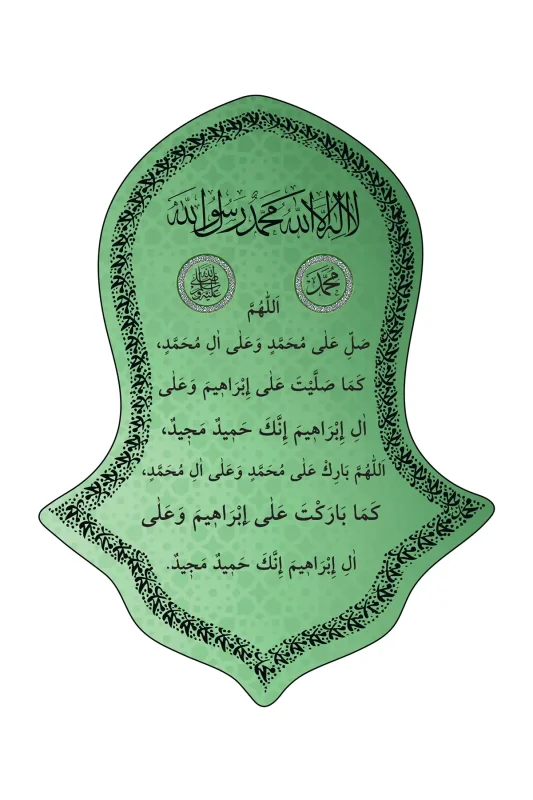 لا إله إلا الله محمد رسول الله
محمد
صلى الله عليه وسلم
اَللّٰهُمَّ
صَلِّ عَلٰى مُحَمَّدٍ وَعَلٰى اٰلِ مُحَمَّدٍ،
كَمَا صَلَّيْتَ عَلٰى إِبْرَاهِيمَ وَعَلٰى
اٰلِ إِبْرَاهِيمَ إِنَّكَ حَمِيدٌ مَجِيدٌ،
اَللّٰهُمَّ بَارِكْ عَلٰى مُحَمَّدٍ وَعَلٰى اٰلِ مُحَمَّدٍ،
كَمَا بَارَكْتَ عَلٰى إِبْرَاهِيمَ وَعَلٰى
اٰلِ إِبْرَاهِيمَ إِنَّكَ حَمِيدٌ مَجِيدٌ.